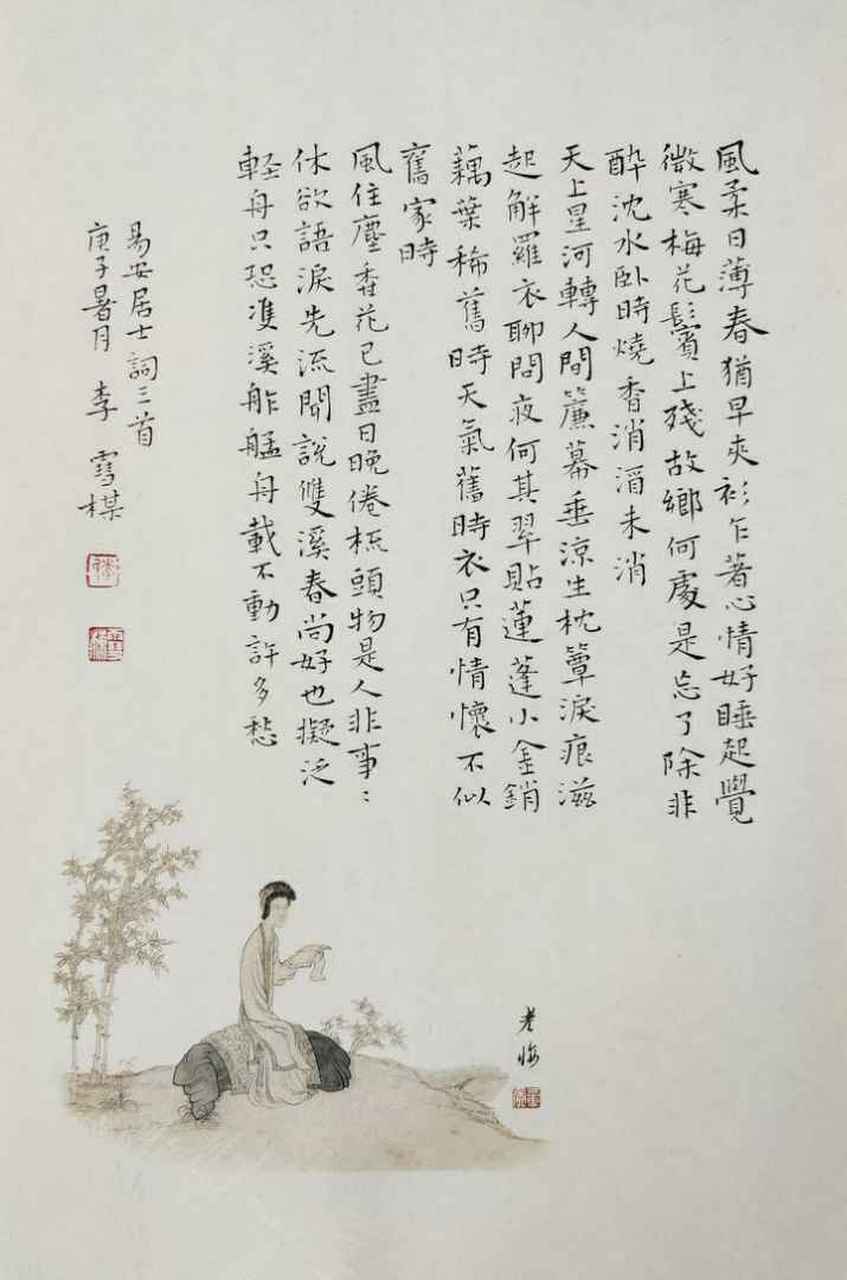 風柔日薄春猶早夾衫乍著心情好睡起覺
微寒梅花鬢上殘故鄉何處是忘了除非
醉沈水臥時燒香消酒未消
天上星河轉人間簾幕垂涼生枕簟淚痕滋
起解羅衣聊問夜何其翠貼蓮蓬小金銷
藕葉稀舊時天氣舊時衣只有情懷不似
舊家時
風住塵香花已盡日晚倦梳頭物是人非事事
休欲語淚先流聞說雙溪春尚好也擬泛
輕舟只恐雙溪舴艋舟載不動許多愁
易安居士詞三首
庚子暑月李雪楳
老悔